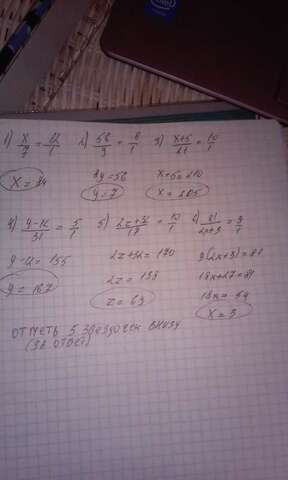 intel
1) x/7 = 12/1 2) 56/y = 8/1 3) x+5/21 = 10/1
x = 84 8y = 56 x+5=210
y = 7 x = 205
4) y-12/31 = 5/1 5) 2z+32/17 = 10/1 6) 81/2x+3 = 9/1
y-12 = 155 2z+32 = 170 9(2x+3) = 81
y = 167 2z = 138 18x+27 = 81
z = 69 18x = 54
x = 3
ОТМЕТЬ 5 ЗВЁЗДОЧЕК ВНИЗУ
(ЗА ОТВЕТ)